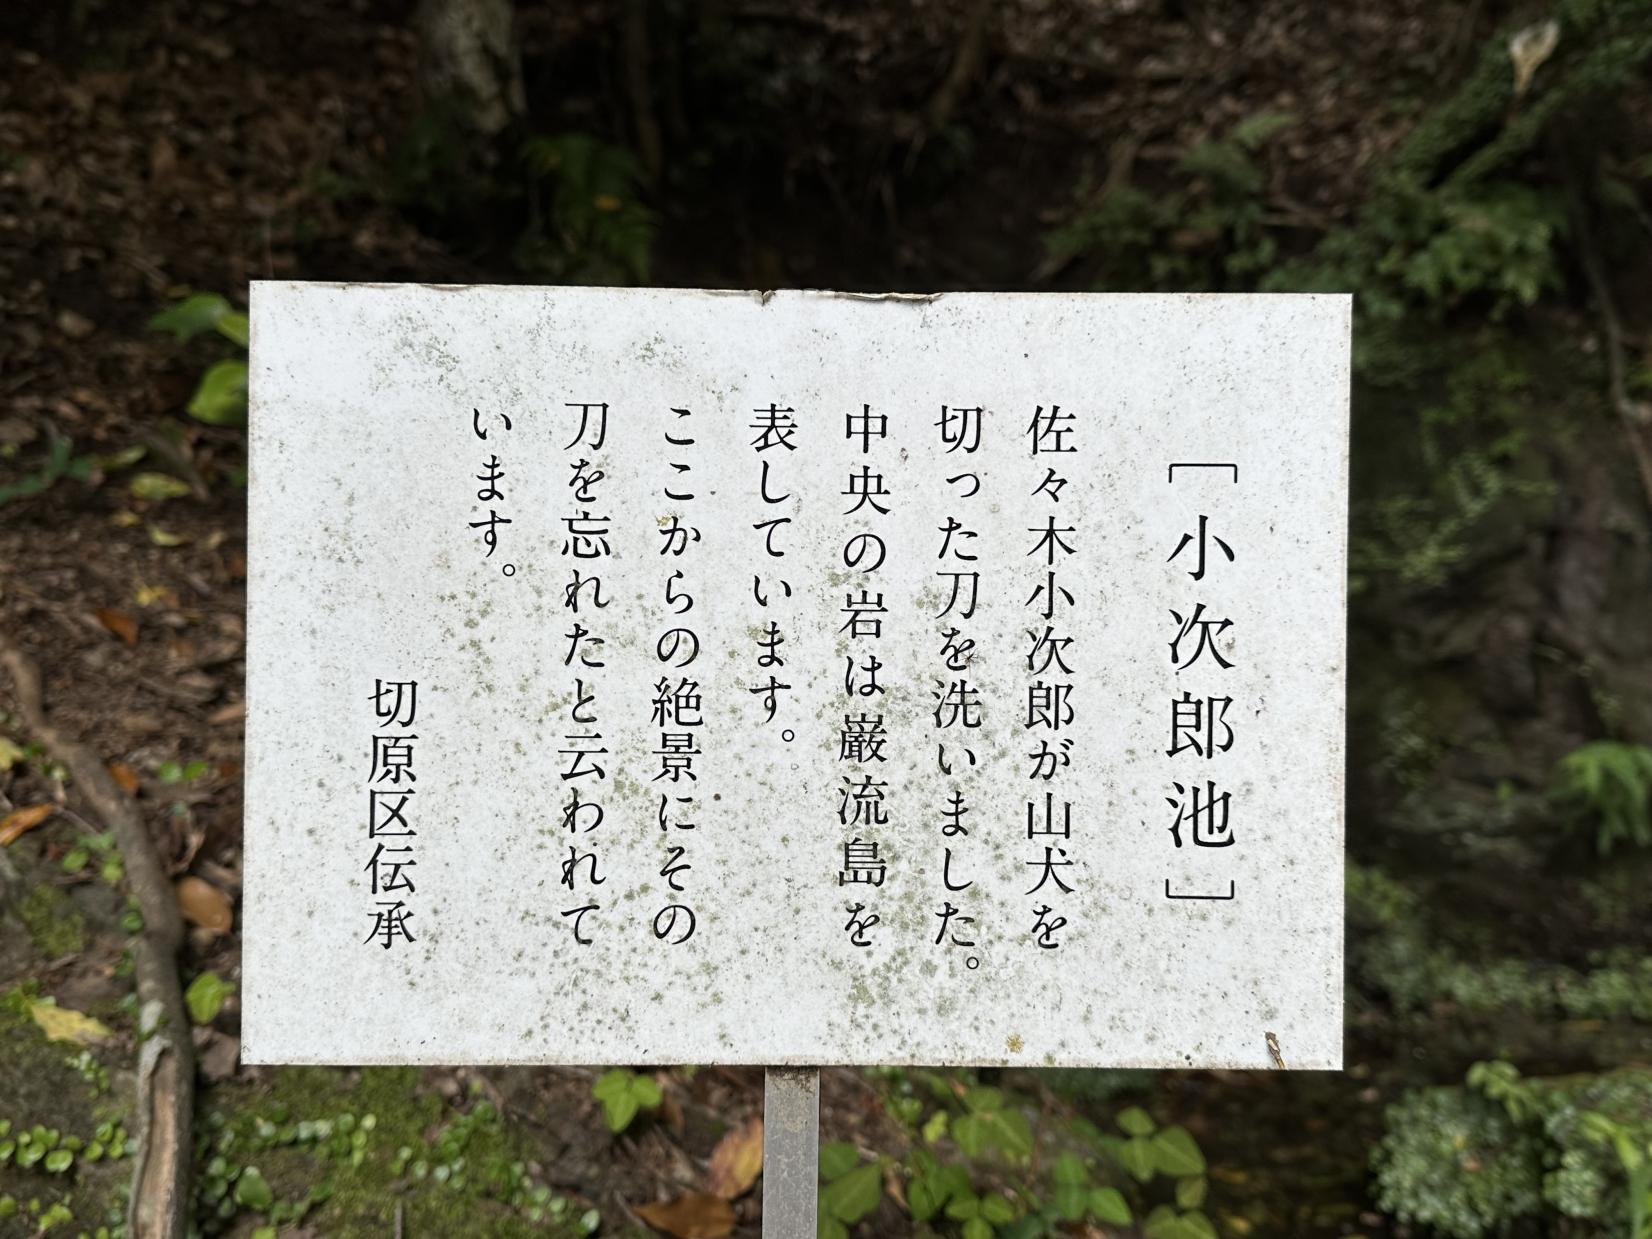 [小次郎池]
佐々木小次郎が山犬を
切った刀を洗いました。
中央の岩は巌流島を
表しています。
ここからの絶景にその
刀を忘れたと云われて
います。
切原区伝承